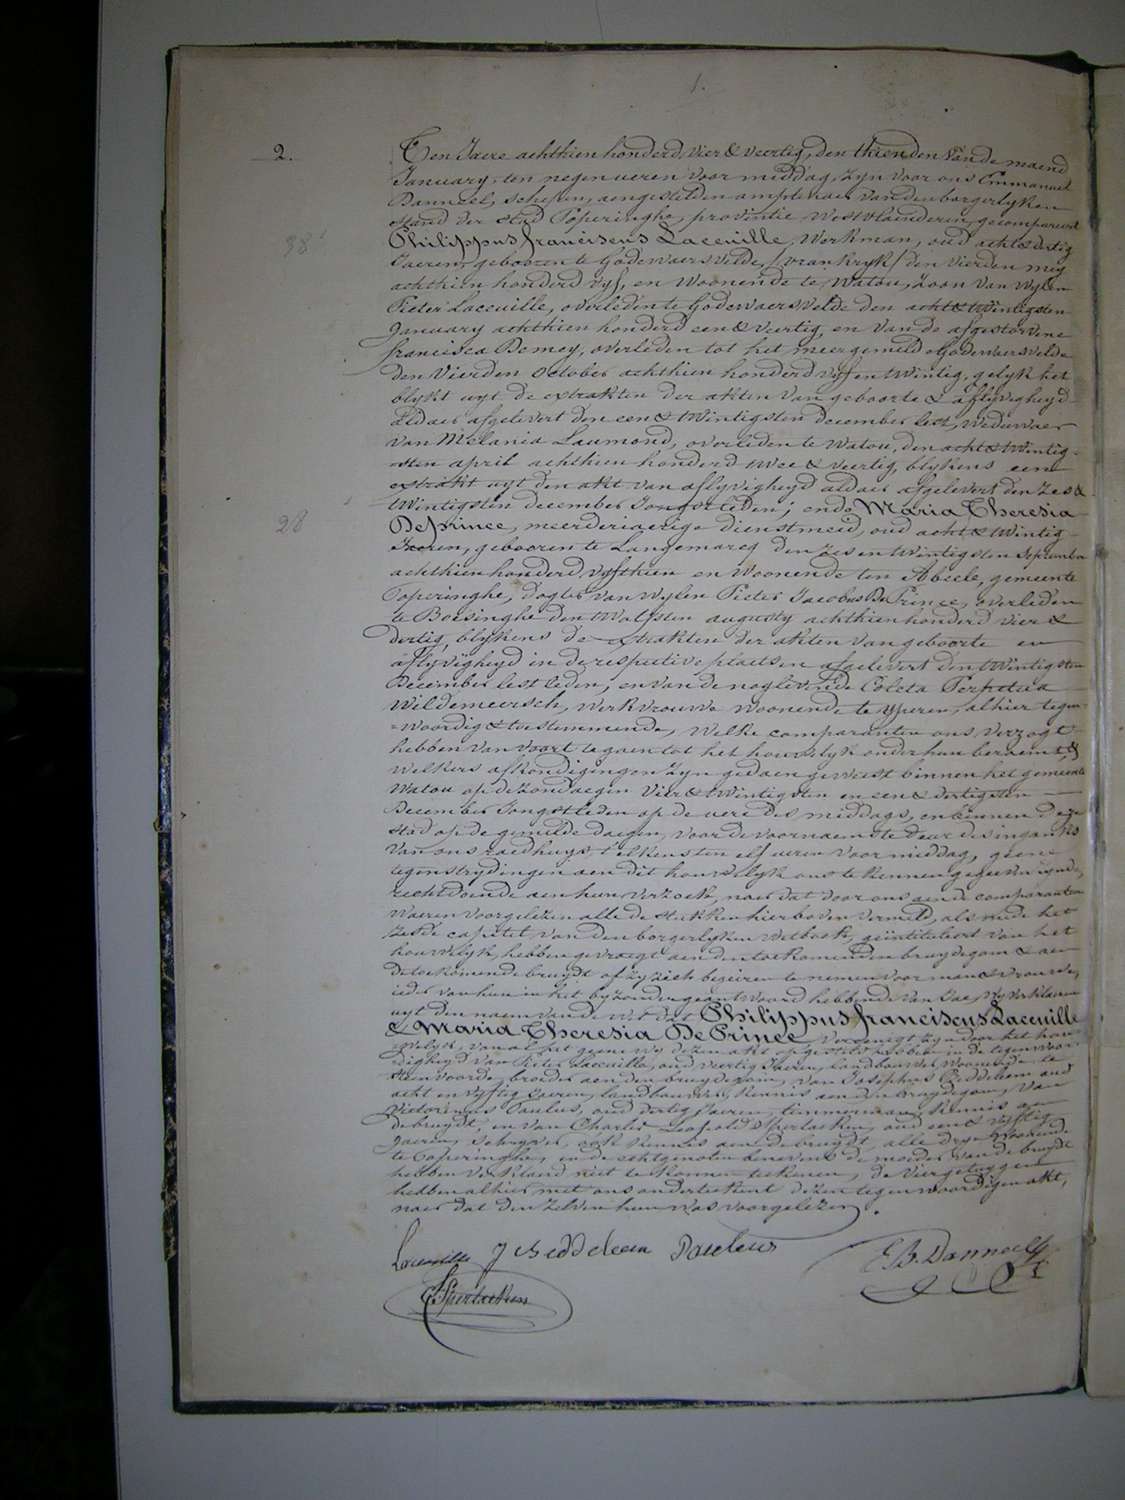 1.
2.
Ten Jaere achthien honderd vier & veertig, den thienden van de maend
January, ten negen ueren voor middag, zyn voor ons Emmanuel
Danneel, schepen, aengestelden amptenaer van den borgerlyken
stand der stad Poperinghe, provintie Westvlaenderen gecompareerd
Philippus franciscus Laceuille, Werkman, oud acht & dertig
38
Jaeren, gebooren te Godewaersvelde, (vrankryk) den vierden mey
achthien honderd vyf, en Woonende te Watou, zoon van wylen
Pieter Laceuille, overleden te Godewaersvelde den acht & twintigsten
January achthien honderd een & veertig, en van de afgestorvene
francisca Demey, overleden tot het meergemeld Godewaersvelde
den Vierden October achthien honderd vyf en twintig, gelyk het
blykt uyt de extrakten der akten van geboorte & aflyvigheyd
aldaer afgelevert den een & twintigsten december lest, Weduwaer
van Melania Laumond, overleden te Watou, den acht & twintig-
sten april achthien honderd twee & veertig, blykens een
extrakt uyt den akt van aflyvigheyd aldaer afgelevert den zes &
twintigsten december Jongstleden; ende Maria Theresia
28
De Prince, meerderjaerige dienstmeid, oud acht & twintig
Jaeren, gebooren te Langemarcq den zes en twintigsten September
achthien honderd vyfthien en Woonende ten Abeele, gemeente
Poperinghe, dogter van wylen Pieter Jacobus De Prince, overleden
te Boesinghe den twalfsten augusty achthien honderd vier &
dertig, blykens de extrakten der akten van geboorte en
aflyvigheyd in de respective plaetsen afgelevert den twintigsten
December lest leden; en van de naglevende Coleta Perpetua
Wildemeersch, Werkvrouwe woonende te yperen, alhier tegen-
=woordig & toestemmende, Welke comparanten ons verzogt
hebben van voort te gaen tot het houwelyk onder hun beraemt, &
Welkers afkondigingen zyn gedaen geweest binnen het gemeente
Watou op de zondaegen vier & twintigsten en een & dertigsten
December Jongstleden op de uere des middags, en binnen deze
stad op de gemelde dagen, voor de voornaemste deur des ingangs
van ons raedhuys, telkens ten elf ueren voormiddag, geene
tegenstrydingen aen dit houwelyk ons te kennen gegeven zynde,
rechtdoende aen hun verzoek, naer dat door ons aen de comparanten
waeren voorgelezen alle de stukken hierboven vermeld, als mede het
zesde capittel van den borgerlyken wetboek, geintituleerd van het
houwelyk, hebben gevraegt aen den toekomenden bruydegom & aen
de toekomende bruydt of zy zich begeiren te nemen voor man & vrouwe,
ieder van hun in het byzonder geantwoord hebbende van Jae, wy verklaeren
uyt den naem van de wet dat Philippus franciscus Laceuille
& Maria Theresia De Prince vereenigt zyn door het hou-
=welyk, van al het geene wy dezen akt opgesteld hebben in de tegenwoor-
digheyd van Pieter Laceuille, oud veertig Jaeren, landbouwer, woonende te
Steenvoorde, broeder aen den bruydegom, van Josephus Beddeleem oud
acht en vyftig Jaeren, landbouwer, kennis aen den bruydegom, van
Victorinus Paulus, oud dertig Jaeren, timmerman, kennis aen
de bruydt, en van Charles Leopold Sperlaeken, oud een & vyftig
Jaeren, schryver, ook kennis aen de bruydt, alle drye woonende
te Poperinghe, en de echtgenoten benevens de moeder van de bruydt
hebben verklaerd niet te konnen teekenen, de vier getuygen
hebben alhier met ons onderteekent dezen tegenwoordigen akt,
naer dat den zelven hun was voorgelezen.
Laceuille J Beddeleem Pauleus E. B. Danneel
C Sperlaeken